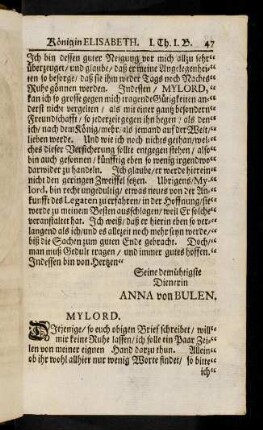 Königin ELISABETH. I. Th. I. B. 47
Ich bin dessen guter Neigung vor mich allzu sehr
überzeuget/ und glaube/ daß er meine Angelegenhei-
ten so besorge/ daß sie ihm weder Tags noch Nachts
Ruhe gönnen werden. Indessen/ MYLORD,
kan ich so grosse gegen mich tragende Gütigkeiten an-
derst nicht vergelten/ als mit einer gantz besondern
Freundschafft/ so jederzeit gegen ihn hegen/ als den
ich/ nach dem König/ mehr als jemand auf der Welt/
lieben werde. Und wie ich noch nichts gethan/ wel-
ches dieser Versicherung solte entgegen stehen/ also
bin auch gesonnen/ künfftig eben so wenig irgendwo
darwider zu handeln. Ich glaube/ er werde hierein
nicht den geringen Zweiffel setzen. Ubrigens/ My-
lord, bin recht ungedultig/ etwas neues von der An-
kunfft des Legaten zu erfahren/ in der Hoffnung/ sie
werde zu meinem Besten ausschlagen/ weil Er solche
veranstaltet hat. Ich weiß/ daß er hierin eben so ver-
langend als ich/ und es allezeit noch mehr seyn werde/
biß die Sachen zum guten Ende gebracht. Doch/
man muß Gedult tragen/ und immer gutes hoffen.
Indessen bin von Hertzen
Seine demühtigste
Dienerin
ANNA von BULEN.
MYLORD.
Diejenige/ so euch obigen Brief schreibet/ will
mir keine Ruhe lassen/ ich solle ein Paar Zei-
len von meiner eignen Hand darzu thun. Allein
ob ihr wohl allhier nur wenig Worte findet/ so bitte
ich